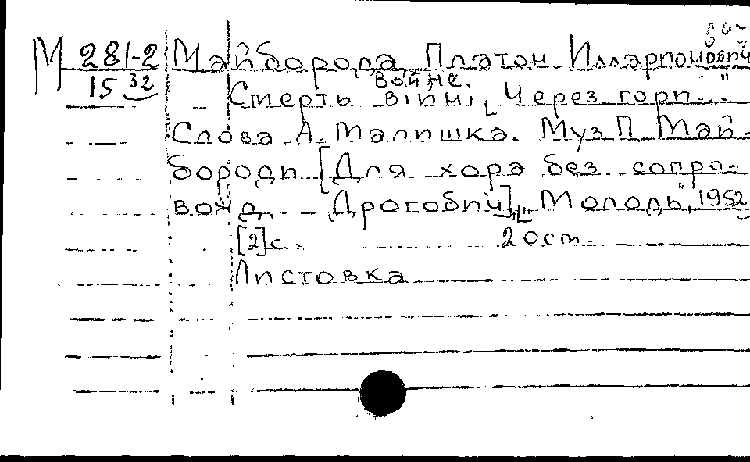 М 281-2 Майборода Платон Илларионович
15 32
войне.
Смерть війні [„Через гори..."
Слова А. Малишка. Муз П. Май-
бороди [Для хора без сопро-
вожд. - Дрогобич], „Молодь", 1952
[2] с. 20 см.
Листовка